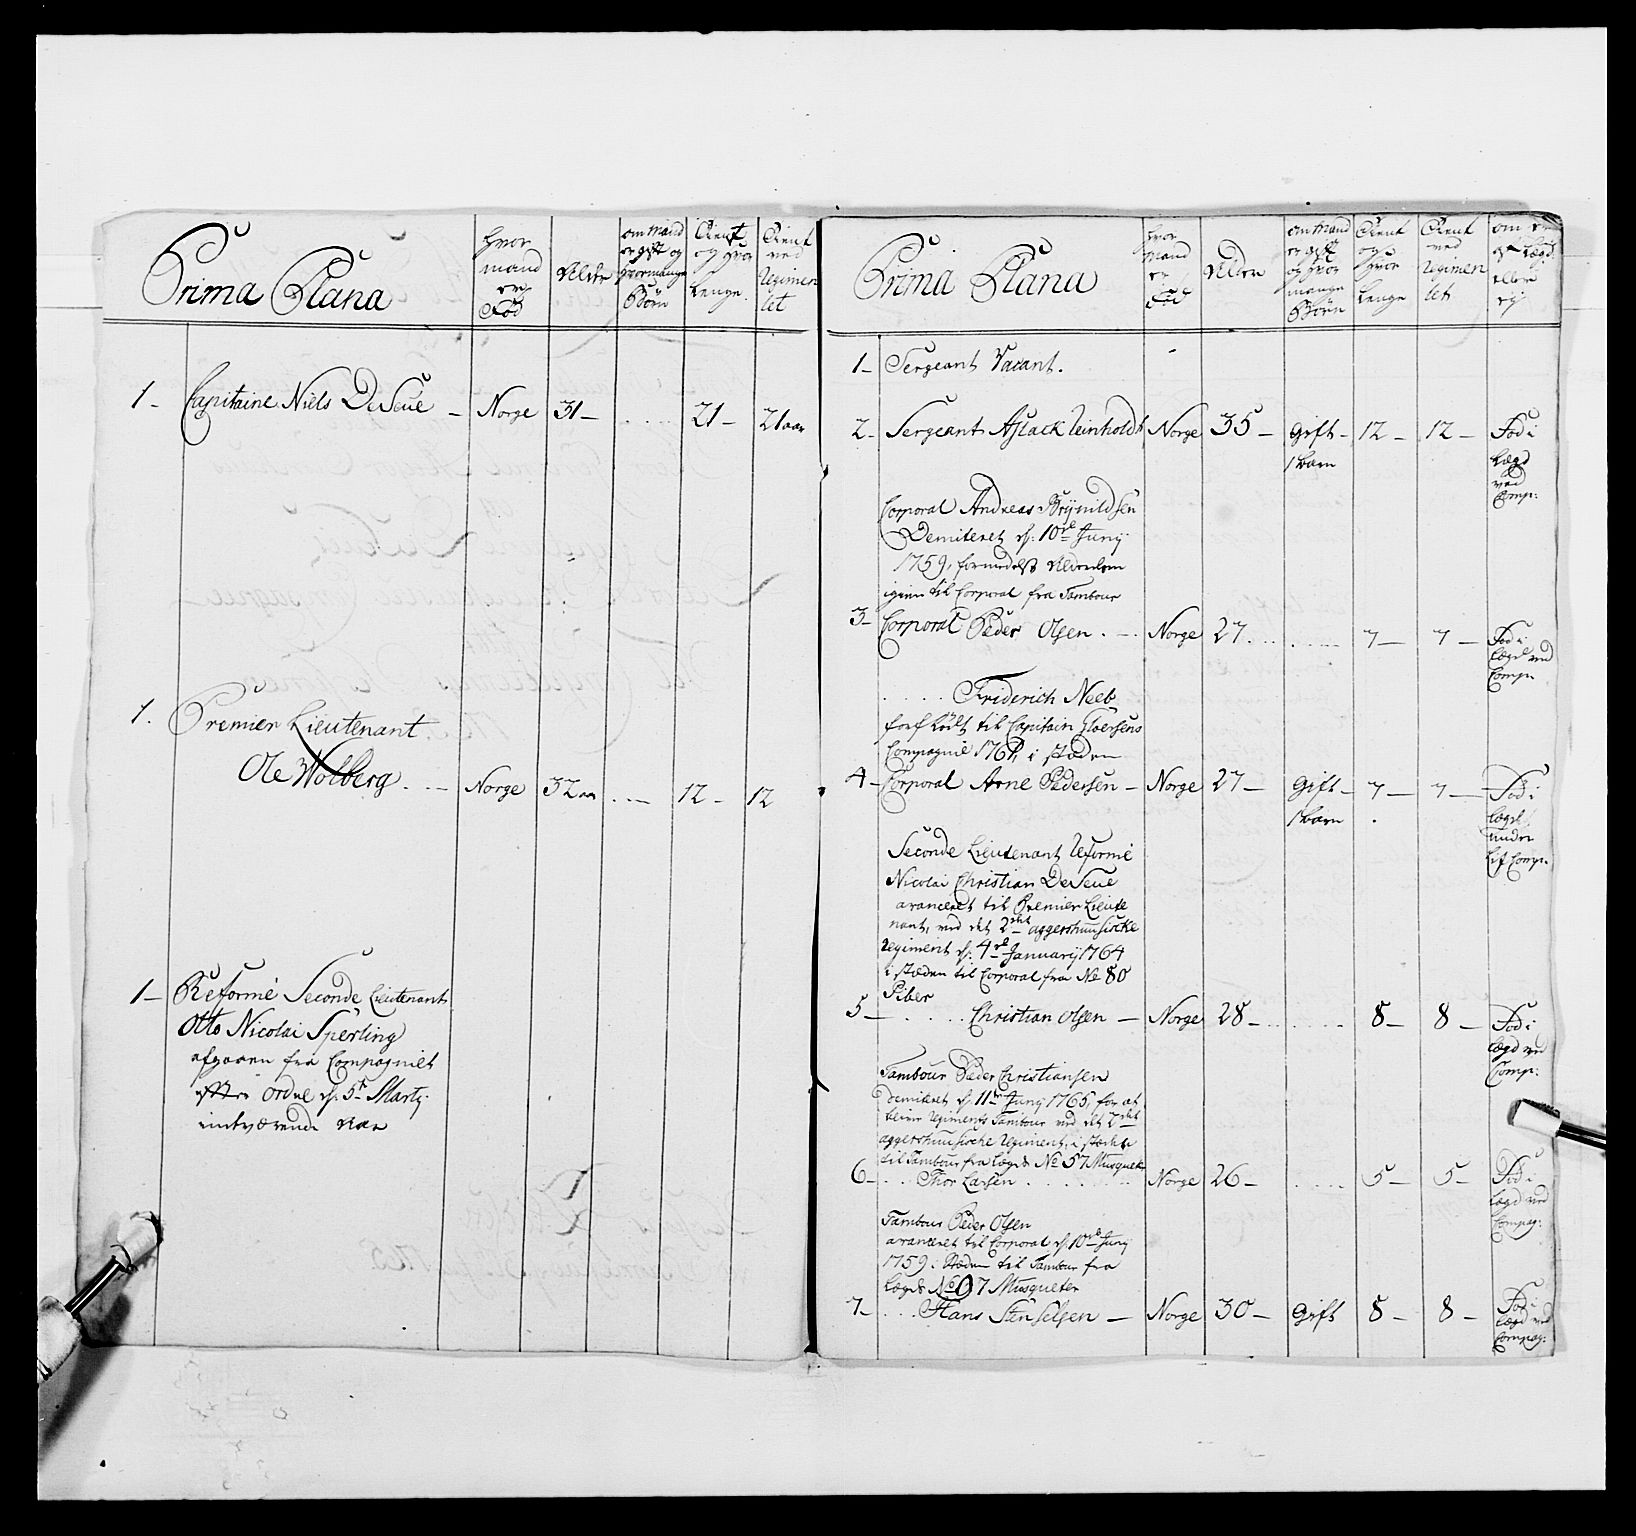 Prima Plana
hvor
mand
er
Fød
Alder
om Mand
er gift og
hvormange
Børn
Tient
og hvor
Lenge.
Tient
ved
Regimen
tet
1- Capitaine Niels De Seue - Norge 31- ..... 21- 21 aar
1. Premier Lieutenant
Ole Wolberg. .. - Norge 32 aar ... - 12- 12
1- Reformé Seconde Lieutenant
Otto Nicolai Sperling
afgaaen fra Compagniet
efter ordre d: 5te Marty
indværende Aar
Prima Plana
hvor
Mand
er
Fød
Alder
om Mand
er gift
og hvor
mange
Børn
Tient
og
hvor
Lenge
Tient
ved
Regimen
tet
om er
Lægd
eller
ej
1- Sergeant Vacant.
2- Sergeant Aslack Reinholdt Norge 35- Gift- 12- 12- Fød i
1 barn Lægd
ved
Comp:
Corporal Andreas Brynildsen
Demiteret d: 10de Juny
1759, formedelst Alderdom
igien til Corporal fra Tambour
3- Corporal Peder Olsen . - . Norge 27 .... ..... 7- 7- Fød i
Lægd ved
Comp.
..... Friderich Neeb
forflödt til Capitain Gloersens
Compagnie 1761, i stæden
4- Corporal Arne Pedersen - Norge 27- Gift- 7- 7- Fød i
1 barn Lægd
under
Lif Comp.
Seconde Lieutenant Reformé
Nicolai Christian De Seue
avanceret til Premier Lieute
nant, ved det 2det aggershuusiscke
Regiment d: 4de January 1764
i stæden til Corporal fra No 80
Piber
5- ..... Christian Olsen - Norge 28- .. ..... 8- 8- Fød i
Lægd ved
Comp:
Tambour Peder Christiansen
Demiteret d: 11te Juny 1765, for at
blive Regiments Tambour ved det 2det
aggershuusische Regiment, i stædet
til Tambour fra Lægd No 57 Musqueter
6- ... Thor Larsen ....... Norge 26- ..... 5- 5- Fød i
Lægd ved
Compag:
Tambour Peder Olsen
avanceret til Corporal d: 10de Juny
1759. Stæden til Tambour fra
Lægd No 97 Musqueter
7- ... Hans Stenselsen - Norge 30- Gift 8- 8- Fød i
Lægd ved
Compag: